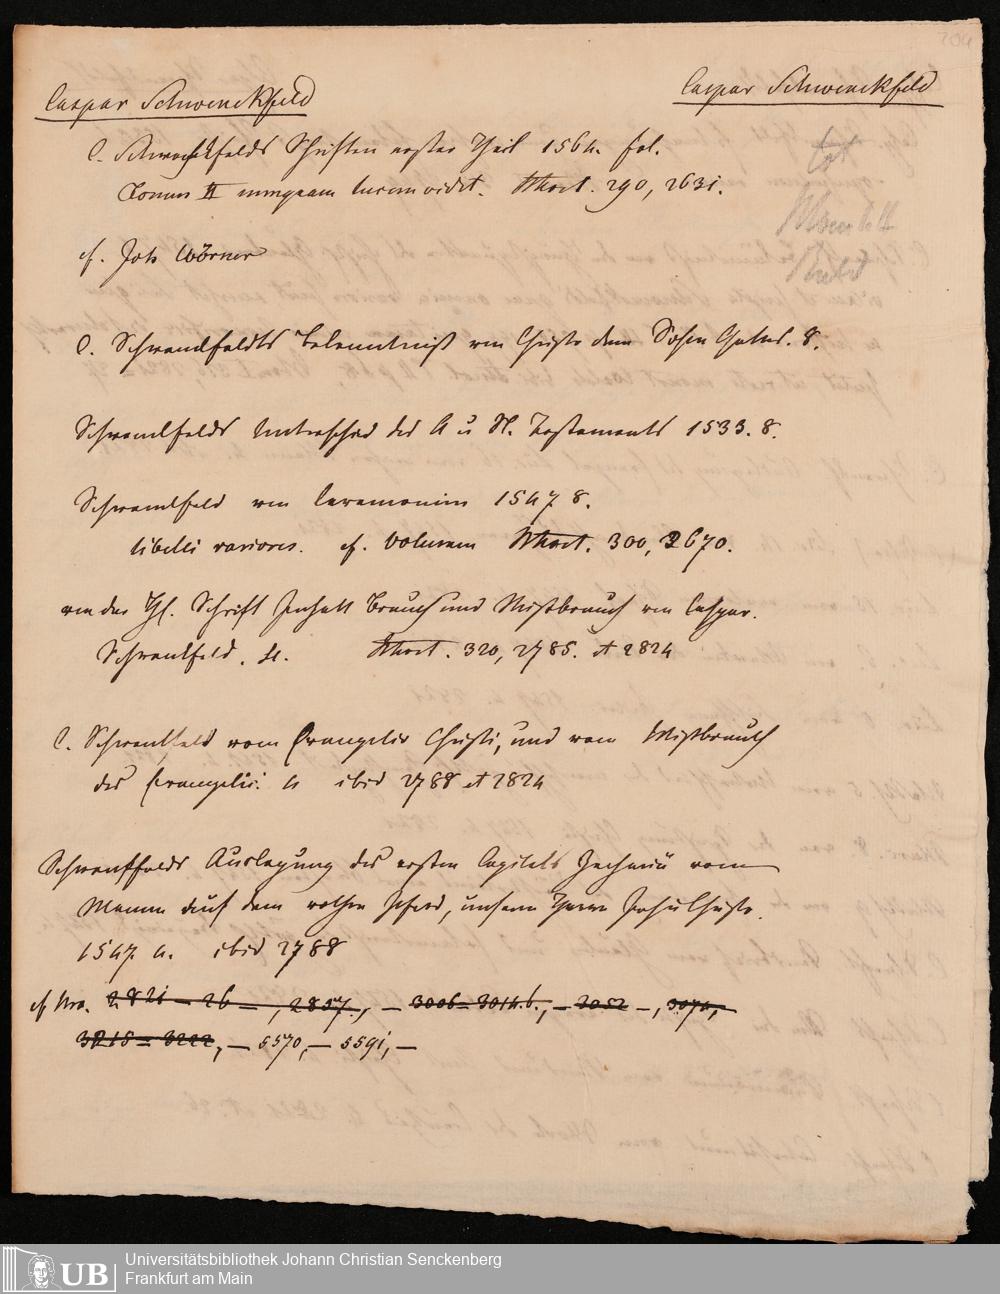 204
Caspar Schwenckfeld
Caspar Schwenckfeld
C. Schwenckfelds Schriften erster Theil 1564. fol.
Tomus II nunquam lucem vidit. 290, 2631.
cf. Joh Wörner
C. Schwenckfeldts Bekenntniß von Christo dem Sohn Gottes. 8.
Schwenckfelds Unterschied des A u N. Testaments 1533. 8.
Schwenckfeld von Ceremonien 1547 8.
libelli rariores. cf. Volumen 300, 2670.
von der H. Schrift Inhalt Brauch und Mißbrauch von Caspar.
Schwenkfeld. 4. 320, 2785. et 2824
C. Schwenkfeld vom Evangelio Christi, und vom Mißbrauch
des Evangelii. 4 ibid 2788 et 2824
Schwenkfelds Auslegung des ersten Capitels Zachariä vom
Manne auf dem rothen Pferd, unserm Herrn Jesu Christo.
1547. 4. ibid 2788
cf Nro. 2821 – 26 –, 2857, – 3006 = 3014.b., – 3052 –, 3074, –
3218 = 3222, – 5570, – 5591, –
UB Universitätsbibliothek Johann Christian Senckenberg
Frankfurt am Main